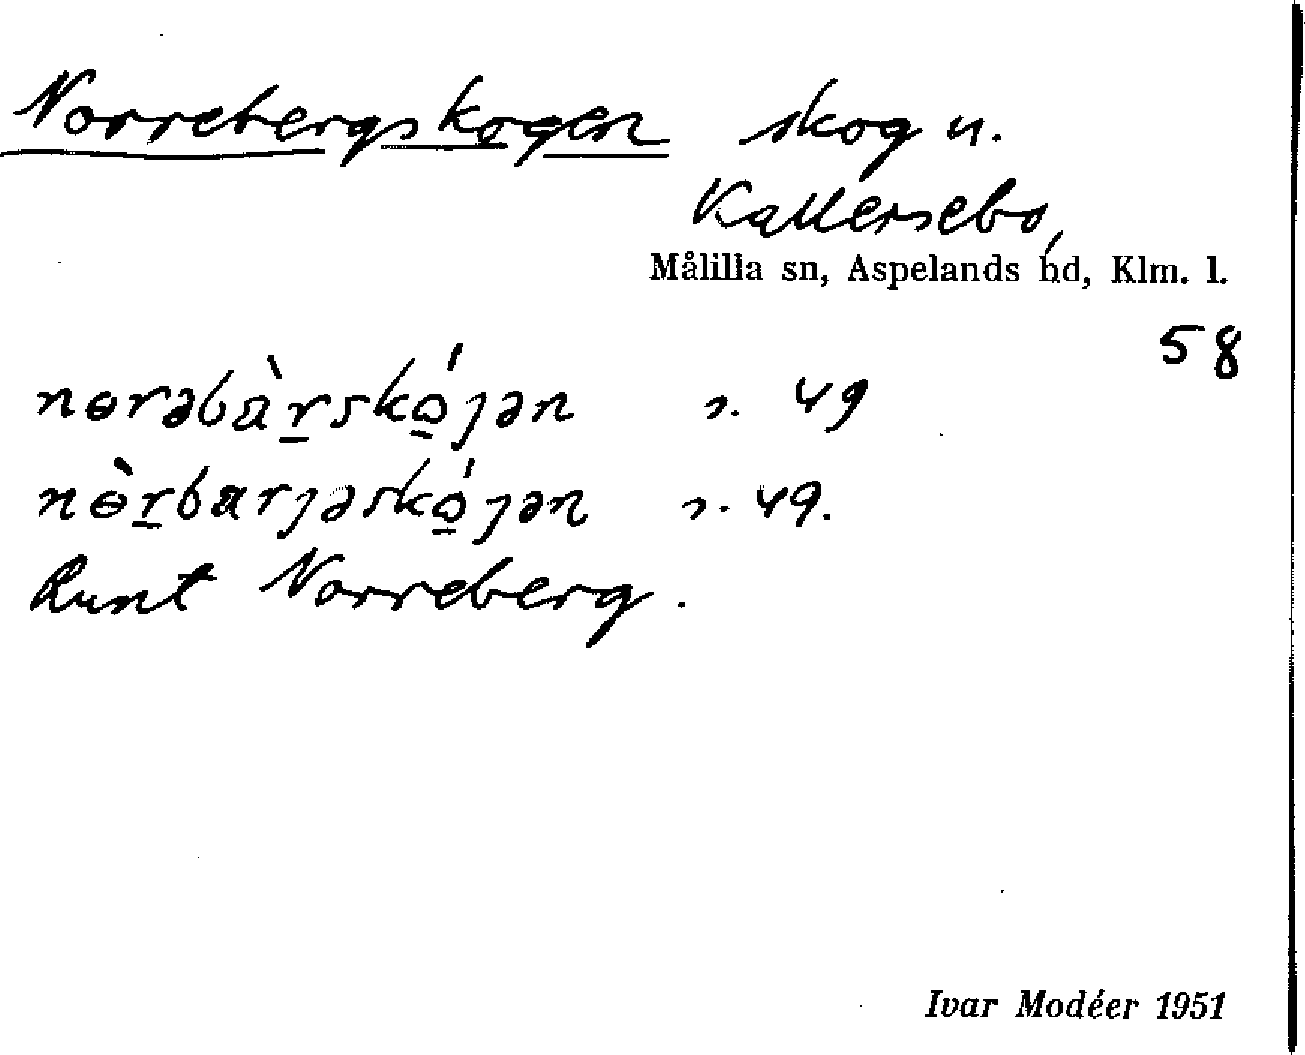 Norrebergskogen skog u.
Kallersebo,
Målilla sn, Aspelands hd, Klm. l.
58
nɵrəbàrskǫ́jən s. 49
nɵ̀rbarjəskǫ́jən s. 49.
Runt Norreberg.
Ivar Modéer 1951